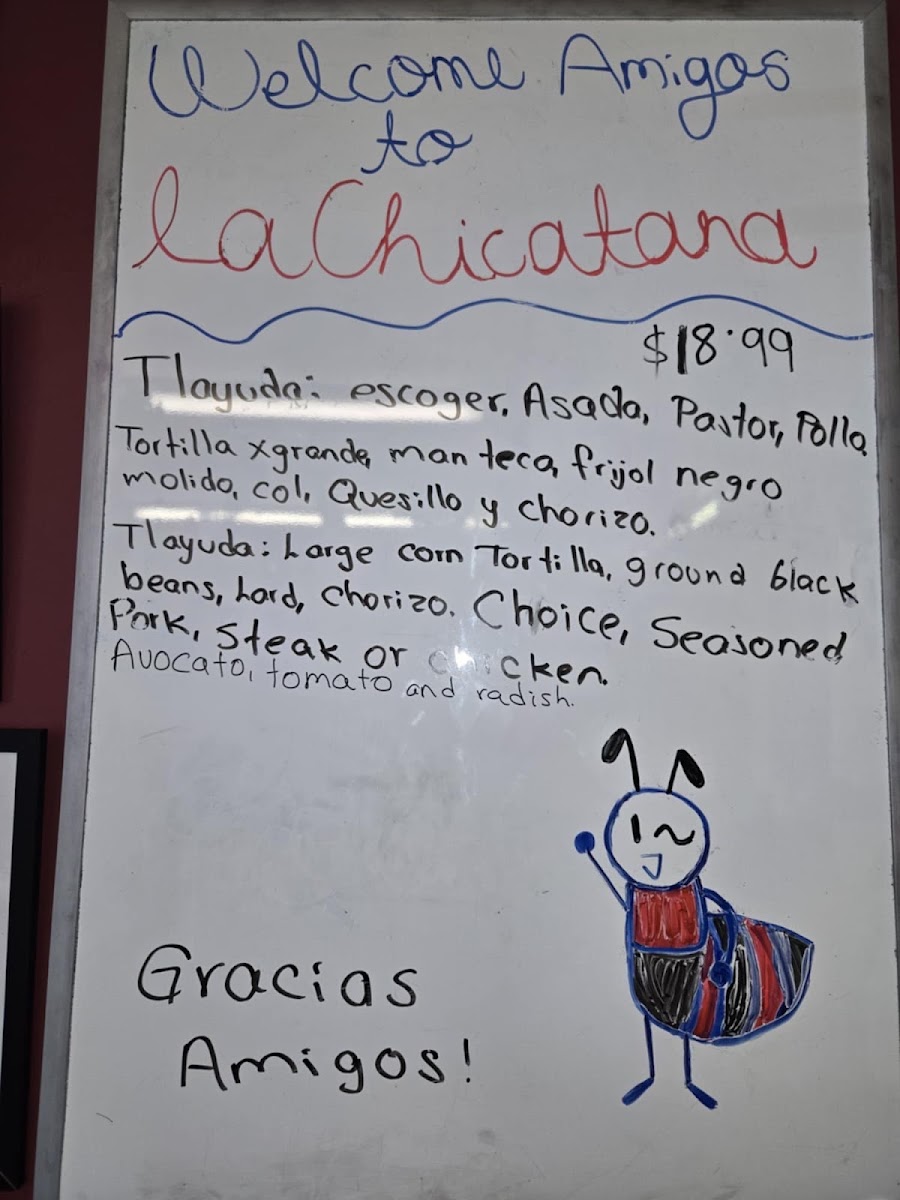 Welcome Amigos
to
la Chicatana
$18.99
Tlayuda: escoger, Asada, Pastor, Pollo,
Tortilla xgrande, manteca, frijol negro
molido, col, Quesillo y chorizo.
Tlayuda: Large corn Tortilla, ground black
beans, Lard, chorizo. Choice, Seasoned
Pork, Steak or chicken.
Avocato, tomato and radish.
Gracias
Amigos!